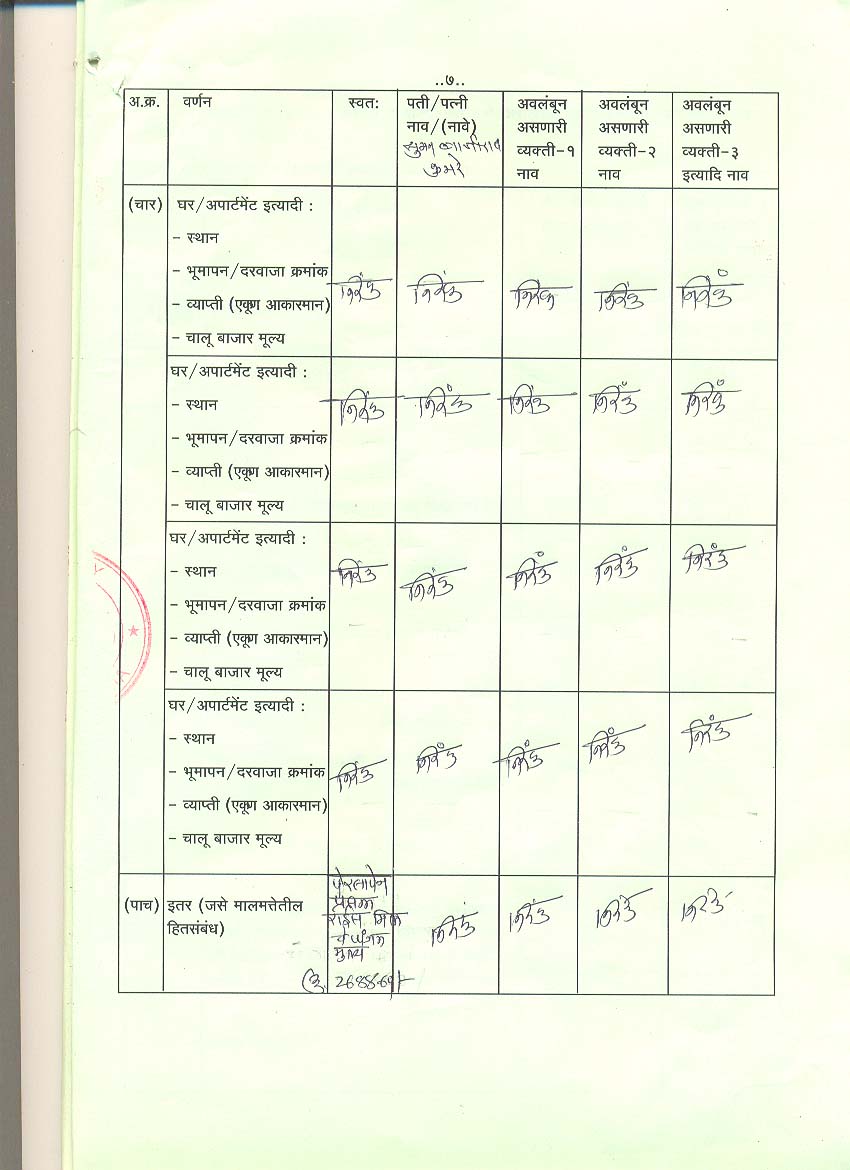 ..७..
अ.क्र. वर्णन स्वतः पती/पत्नी नाव/(नावे) अवलंबून असणारी व्यक्ती-१ नाव अवलंबून असणारी व्यक्ती-२ नाव अवलंबून असणारी व्यक्ती-३ इत्यादि नाव
सुमन
(चार) घर/अपार्टमेंट इत्यादी :
- स्थान
- भूमापन/दरवाजा क्रमांक
निरंक निरंक निरंक निरंक निरंक
- व्याप्ती (एकूण आकारमान)
- चालू बाजार मूल्य
घर/अपार्टमेंट इत्यादी :
- स्थान
निरंक निरंक निरंक निरंक निरंक
- भूमापन/दरवाजा क्रमांक
- व्याप्ती (एकूण आकारमान)
- चालू बाजार मूल्य
घर/अपार्टमेंट इत्यादी :
- स्थान
निरंक निरंक निरंक निरंक निरंक
- भूमापन/दरवाजा क्रमांक
- व्याप्ती (एकूण आकारमान)
- चालू बाजार मूल्य
घर/अपार्टमेंट इत्यादी :
- स्थान
- भूमापन/दरवाजा क्रमांक
निरंक निरंक निरंक निरंक निरंक
- व्याप्ती (एकूण आकारमान)
- चालू बाजार मूल्य
(पाच) इतर (जसे मालमत्तेतील
हितसंबंध)
राईस मिल
निरंक निरंक निरंक निरंक